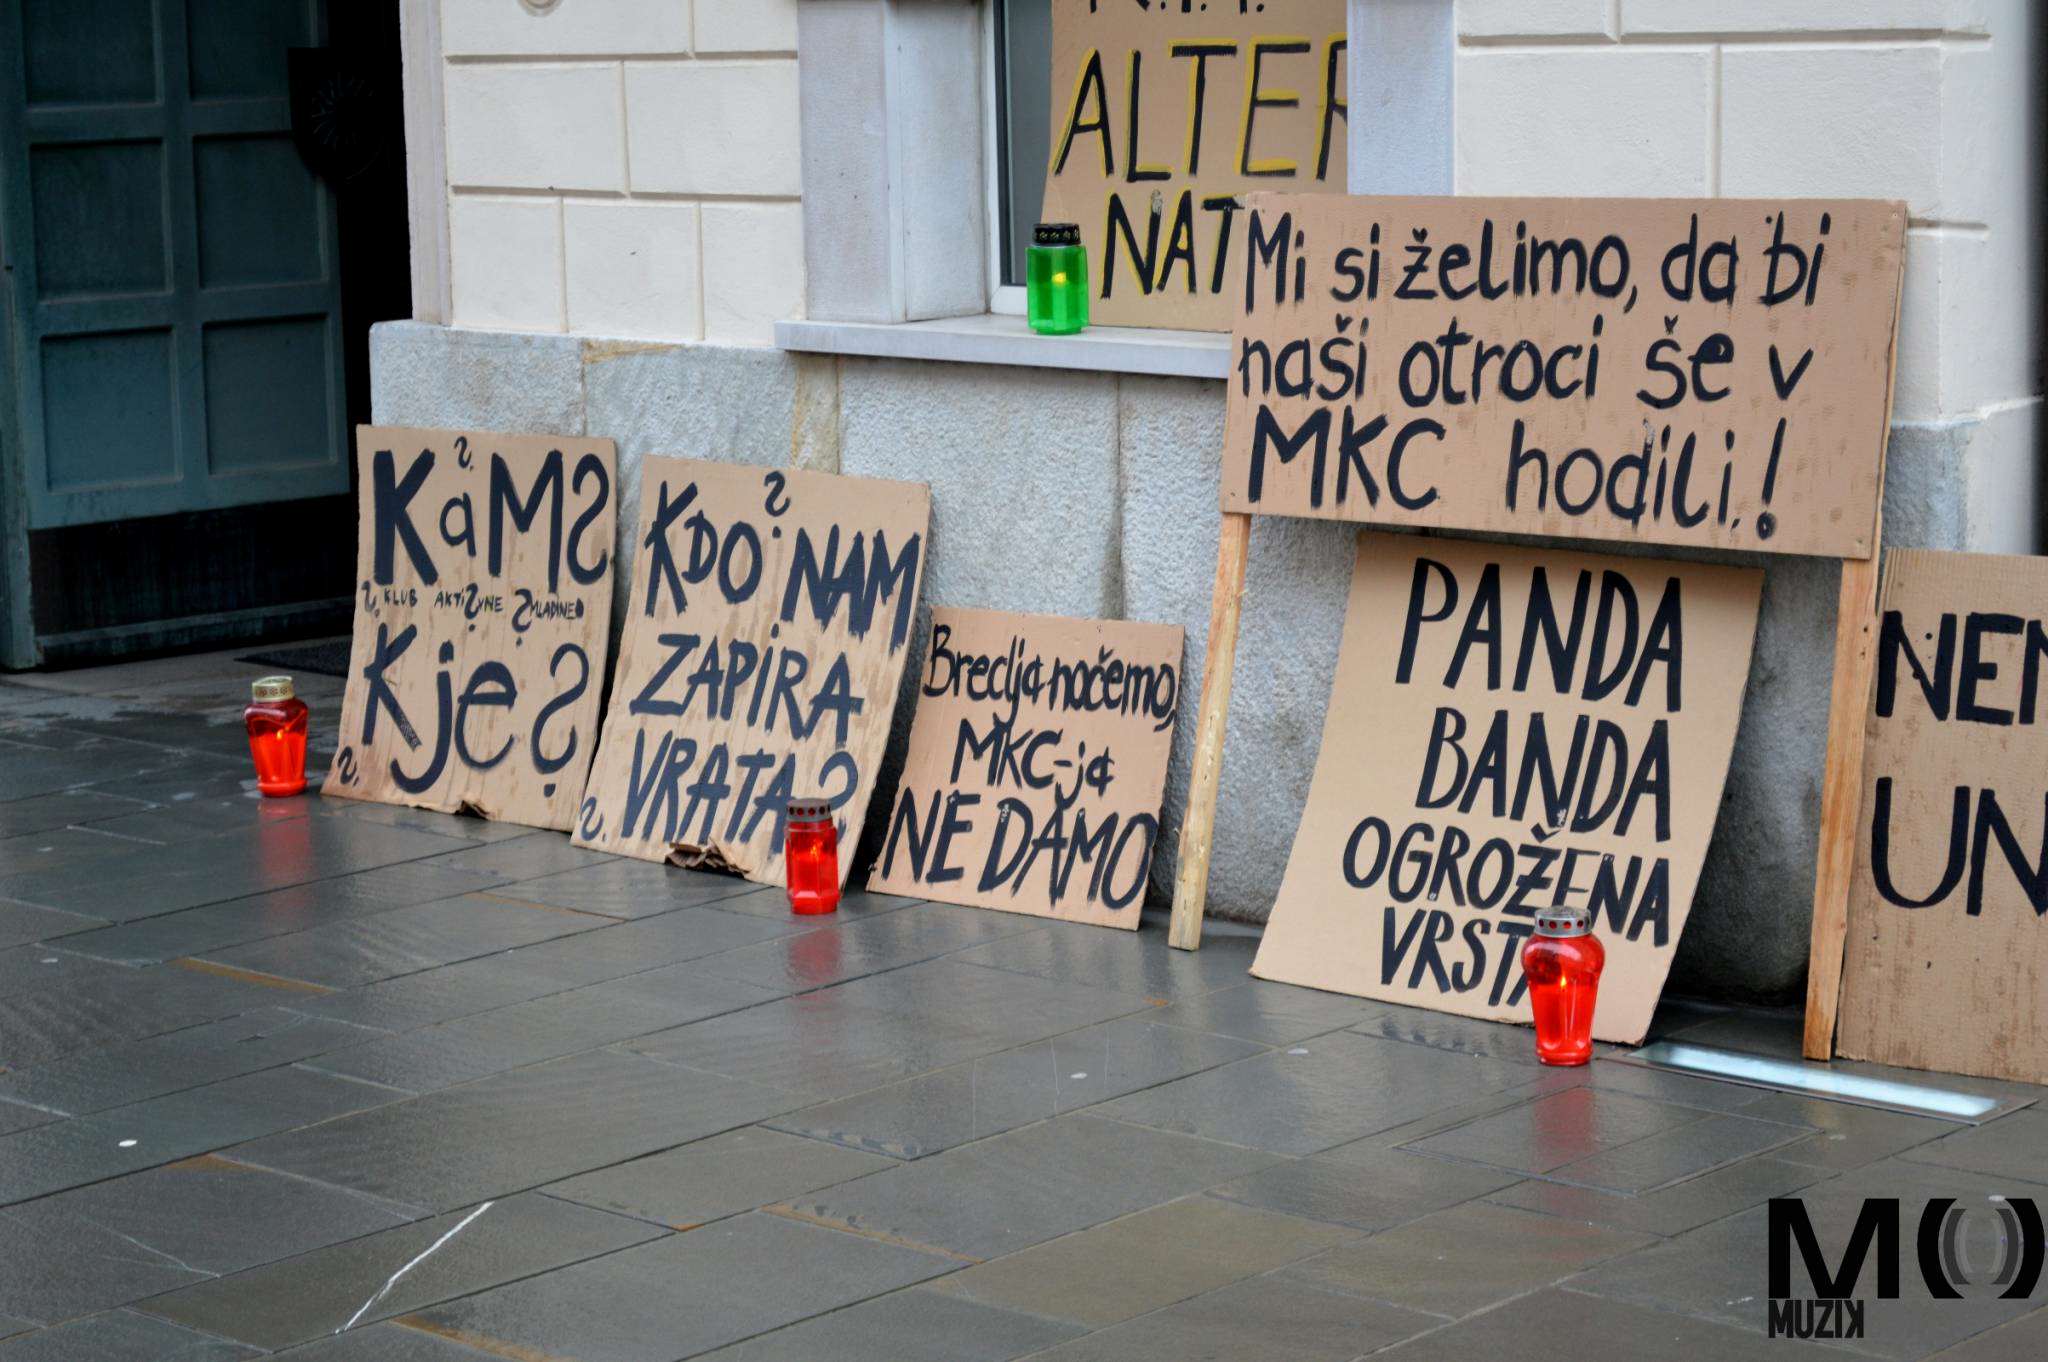 ALTER
NAT
Mi si želimo, da bi
naši otroci še v
MKC hodili!
KaM?
KLUB AKTIVNE MLADINE
Kje?
KDO NAM
ZAPIRA
VRATA?
Breclja nočemo,
MKC-ja
NE DAMO
PANDA
BANDA
OGROŽENA
VRSTA
NEM
UN
MO
MUZIK